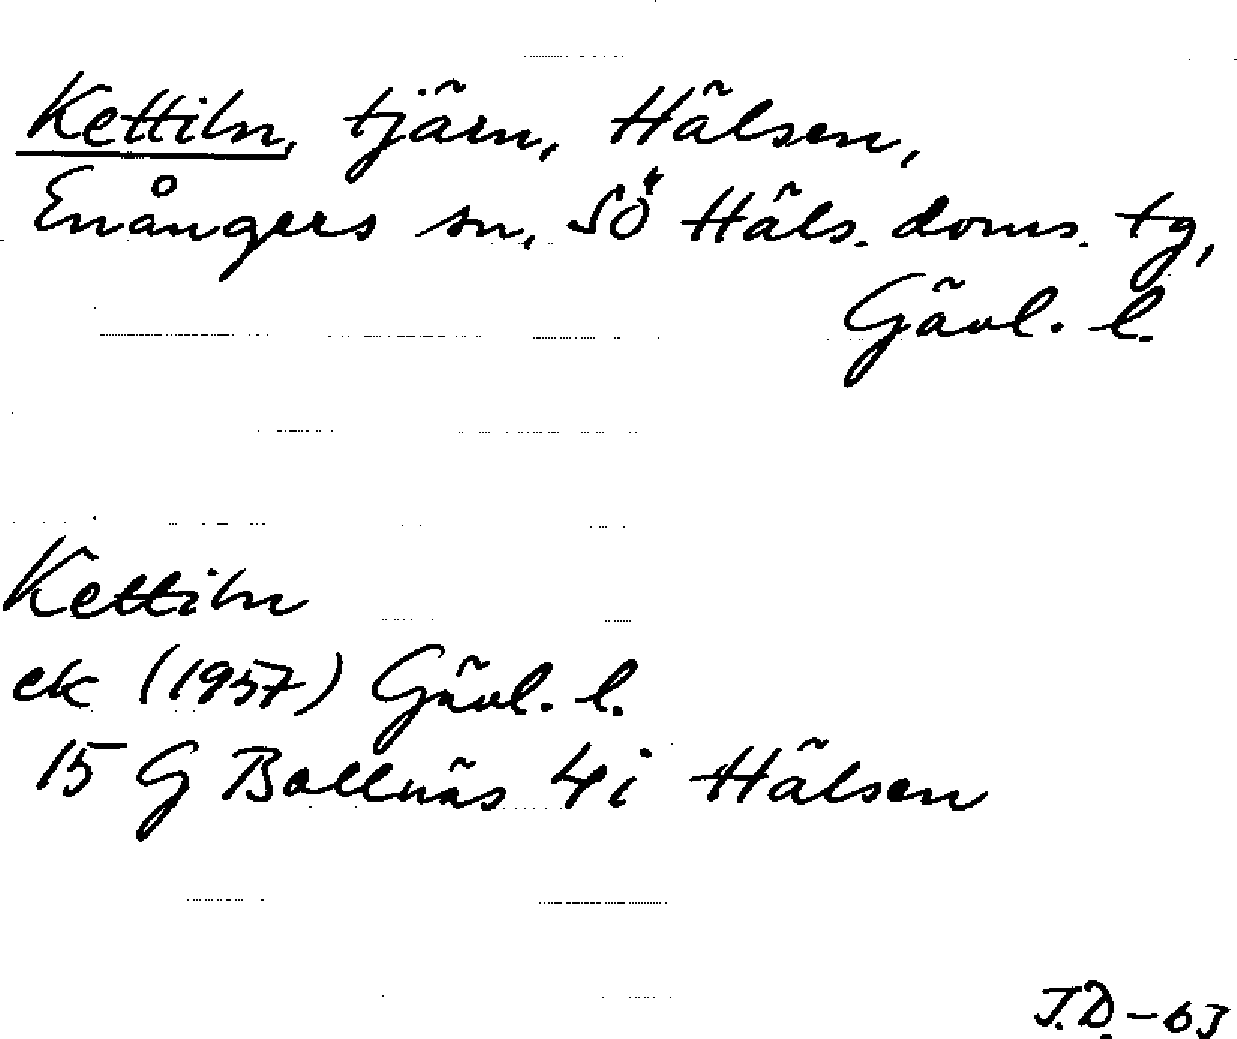 Kettiln, tjärn, Hälsen,
Enångers sn, SÖ Häls. doms. tg,
Gävl. l.
Kettiln
ek (1957) Gävl. l.
15 G Bollnäs 4i Hälsen
J.D.-63